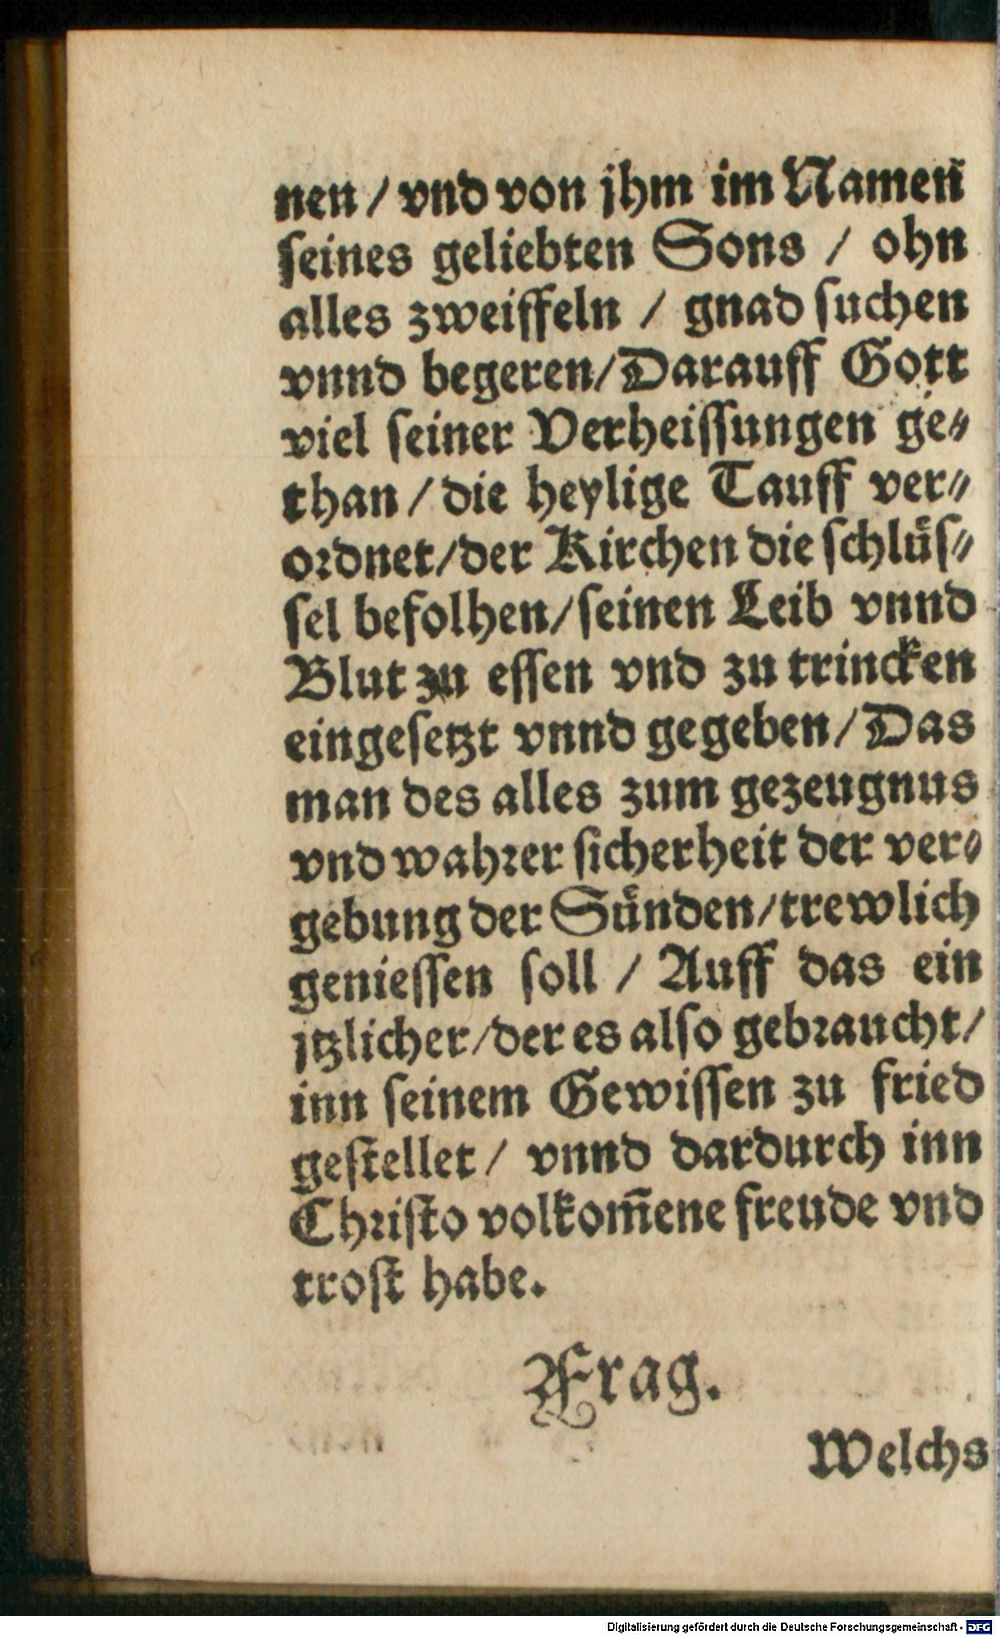 nen / vnd von jhm im Namen
seines geliebten Sons / ohn
alles zweiffeln / gnad suchen
vnnd begeren / Darauff Gott
viel seiner Verheissungen ge⸗
than / die heylige Tauff ver⸗
ordnet / der Kirchen die schlůs⸗
sel befolhen / seinen Leib vnnd
Blut zu essen vnd zu trincken
eingesetzt vnnd gegeben / Das
man des alles zum gezeugnus
vnd wahrer sicherheit der ver⸗
gebung der Sůnden / trewlich
geniessen soll / Auff das ein
jtzlicher / der es also gebraucht /
inn seinem Gewissen zu fried
gestellet / vnnd dardurch inn
Christo volkom̃ene freude vnd
trost habe.
Frag.
Welchs
Digitalisierung gefördert durch die Deutsche Forschungsgemeinschaft - DFG